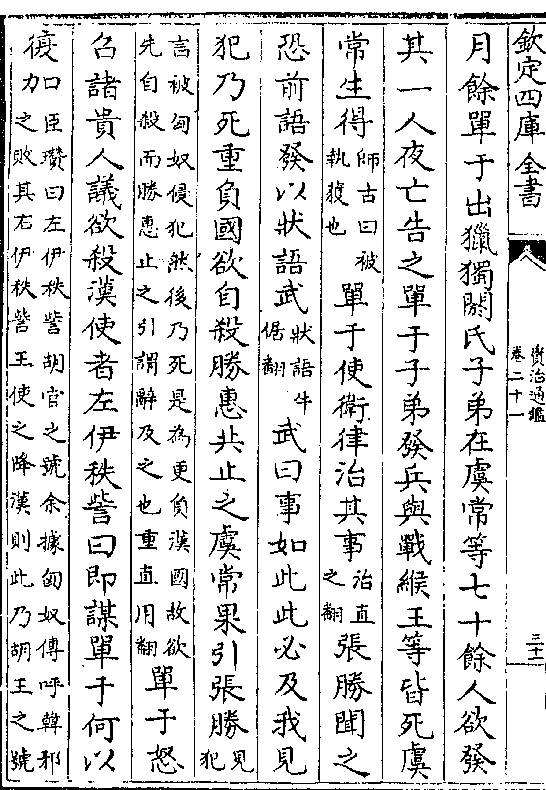 欽定四庫全書
資治通鑑
卷二十一
月餘單于出獵獨閼氏子弟在虞常等七十餘人欲發
其一人夜亡告之單于子弟發兵與戰緱王等皆死虞
常生得師古曰被執獲也單于使衛律治其事治直之翻張勝聞之
恐前語發以狀語武狀語牛倨翻武曰事如此此必及我見
犯乃死重負國欲自殺勝惠共止之虞常果引張勝見犯
言被匈奴侵犯然後乃死是為更負漢國故欲先自殺而勝惠止之引謂辭及之也重直用翻單于怒
召諸貴人議欲殺漢使者左伊秩訾曰即謀單于何以
復加臣瓚曰左伊秩訾胡官之號余據匈奴傳呼韓邪之敗其右伊秩訾王使之降漢則此乃胡王之號